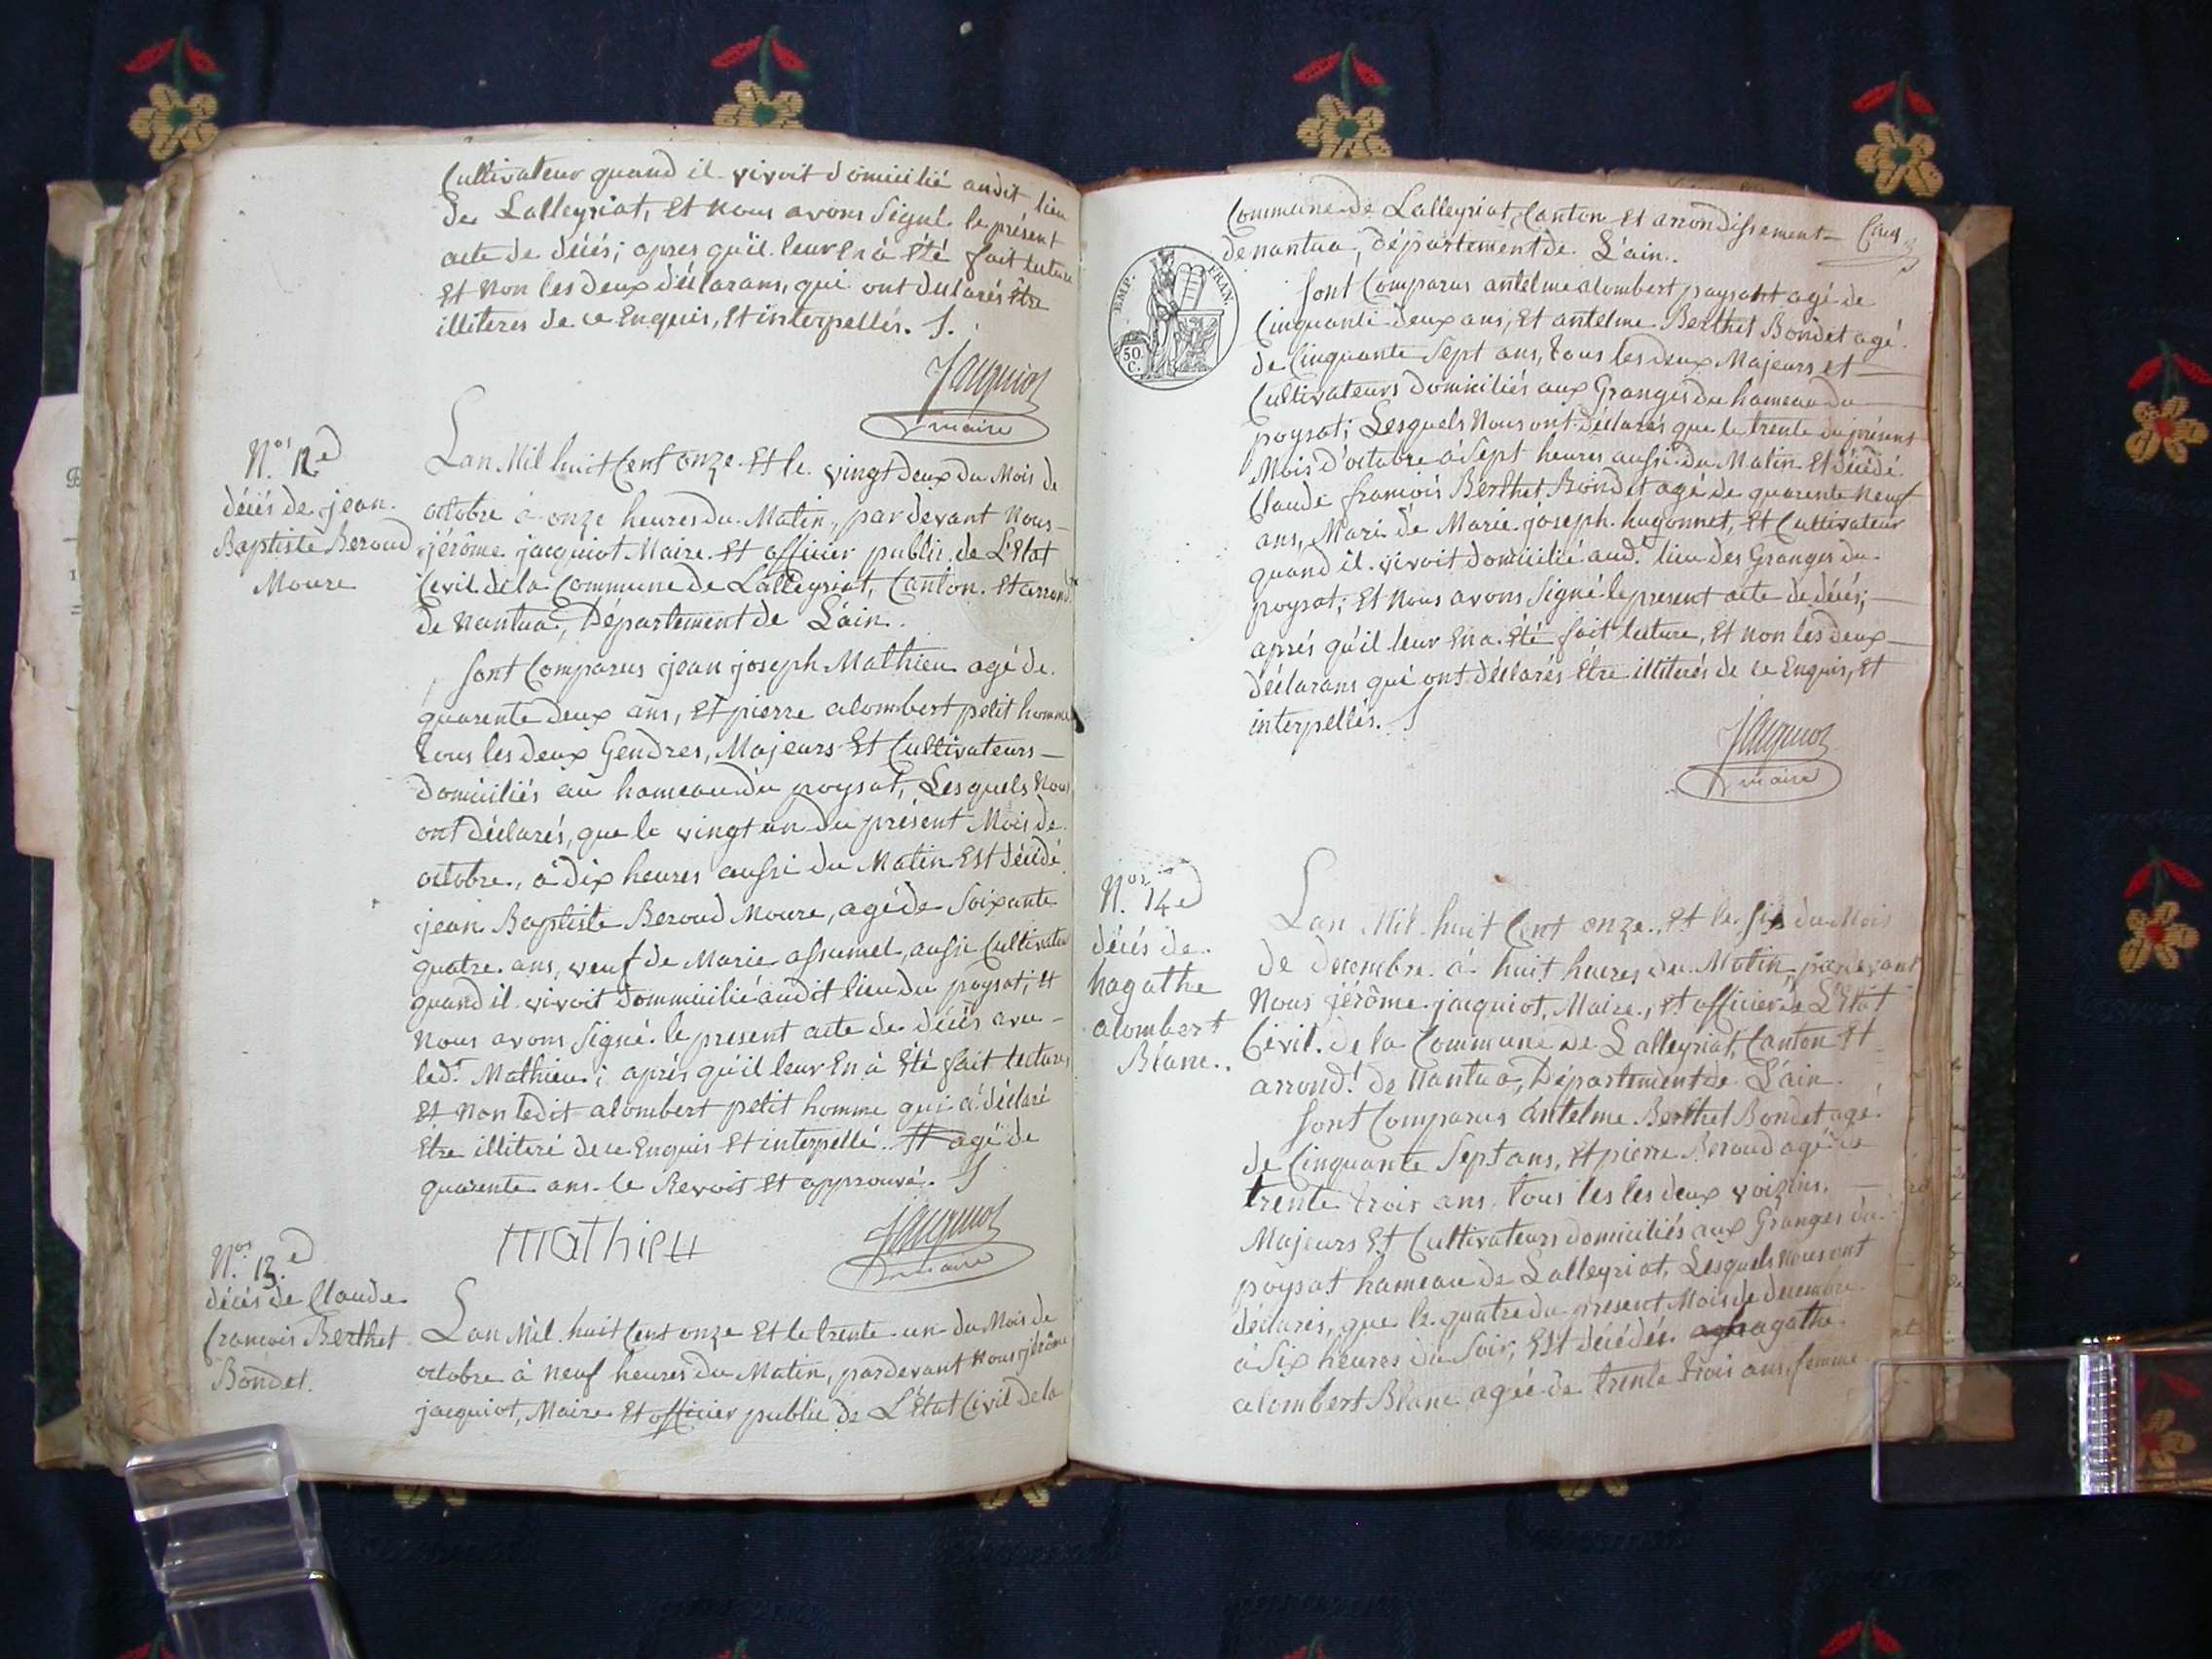 Cultivateur quand il vivoit domicilié audit lieu
de Lalleyriat, Et nous avons Signé le présent
acte de décés; apres qu'il leur En à Eté fait lecture
Et Non les deux déclarans, qui ont déclarés être
illiteres de ce Enquis, Et interpellés. S.
Jacquiot
maire
N.os 12.e
décés de jean
Baptiste Beroud
Moure
Lan Mil huit Cent onze Et le vingt deux du Mois de
octobre à onze heures du Matin, pardevant Nous
jérôme jacquiot Maire Et officier public de L'Etat
Civil de la Commune de Lalleyriat, Canton Et arrond.t
de Nantua, Département de L'ain.
Sont Comparus jean joseph Mathieu agé de
quarente deux ans, Et pierre alombert petit homme
tous les deux Gendres, Majeurs Et Cultivateurs
domiciliés au hameau du poysat, Lesquels Nous
ont déclarés, que le vingt un du présent Mois de
octobre, à dix heures aussi du Matin Est décédé
jean Baptiste Beroud Moure, agé de Soixante
quatre ans, veuf de Marie assumel, aussi Cultivateur
quand il vivoit dommicilié audit lieu du poysat; Et
Nous avons Signé le present acte de décés avec
led.t Mathieu; aprés qu'il leur En à Eté fait lecture
Et Non ledit alombert petit homme qui à déclaré
Etre illiteré de ce Enquis Et interpellé. # agé de
quarente ans le Revoit Et approuvé. S
Mathieu
Jacquiot
maire
N.os 13.e
décés de Claude
francois Berthet
Bondet.
Lan Mil huit Cent onze Et le trente un du Mois de
octobre à Neuf heures du Matin, pardevant Nous jérôme
jacquiot, Maire Et officier public de L'Etat Civil de la
Commune de Lalleyriat, Canton Et arrondissement
Cinq
de nantua, département de L'ain.
EMP. FRAN.
50 C.
Sont Comparus antelme alombert paysant agé de
Cinquante deux ans, Et antelme Berthet Bondet agé
de Cinquante Sept ans, tous les deux Majeurs et
Cultivateurs domiciliés aux Granges du hameau du
poysat; Lesquels Nous ont déclarés que le trente du présent
Mois d'octobre à Sept heures aussi du Matin Et décédé
Claude francois Berthet Bondet agé de quarente Neuf
ans, Mari de Marie joseph hugonnet, Et Cultivateur
quand il vivoit domicilié aud.t lieu des Granges du
poysat; Et Nous avons Signé le present acte de décés;
aprés qu'il leur En a Eté fait lecture, Et Non les deux
déclarans qui ont déclarés Etre illiterés de ce Enquis, Et
interpellés. S
Jacquiot
maire
N.os 14.e
décés de
hagathe
alombert
Blanc.
Lan Mil huit Cent onze, Et le six du Mois
de decembre à huit heures du Matin pardevant
Nous jérôme jacquiot, Maire, Et officier de L'Etat
Civil de la Commune de Lalleyriat, Canton Et
arrond.t de Nantua, Département de L'ain.
Sont Comparus antelme Berthet Bondet agé
de Cinquante Sept ans, Et pierre Beroud agé de
trente trois ans tous les les deux voizins,
Majeurs Et Cultivateurs domiciliés aux Granges du
poysat hameau de Lalleyriat, Lesquels Nous ont
déclarés, que le quatre du present Mois de decembre
à Six heures du Soir, Est décédée agathe
alombert Blanc agée de trente trois ans, femme